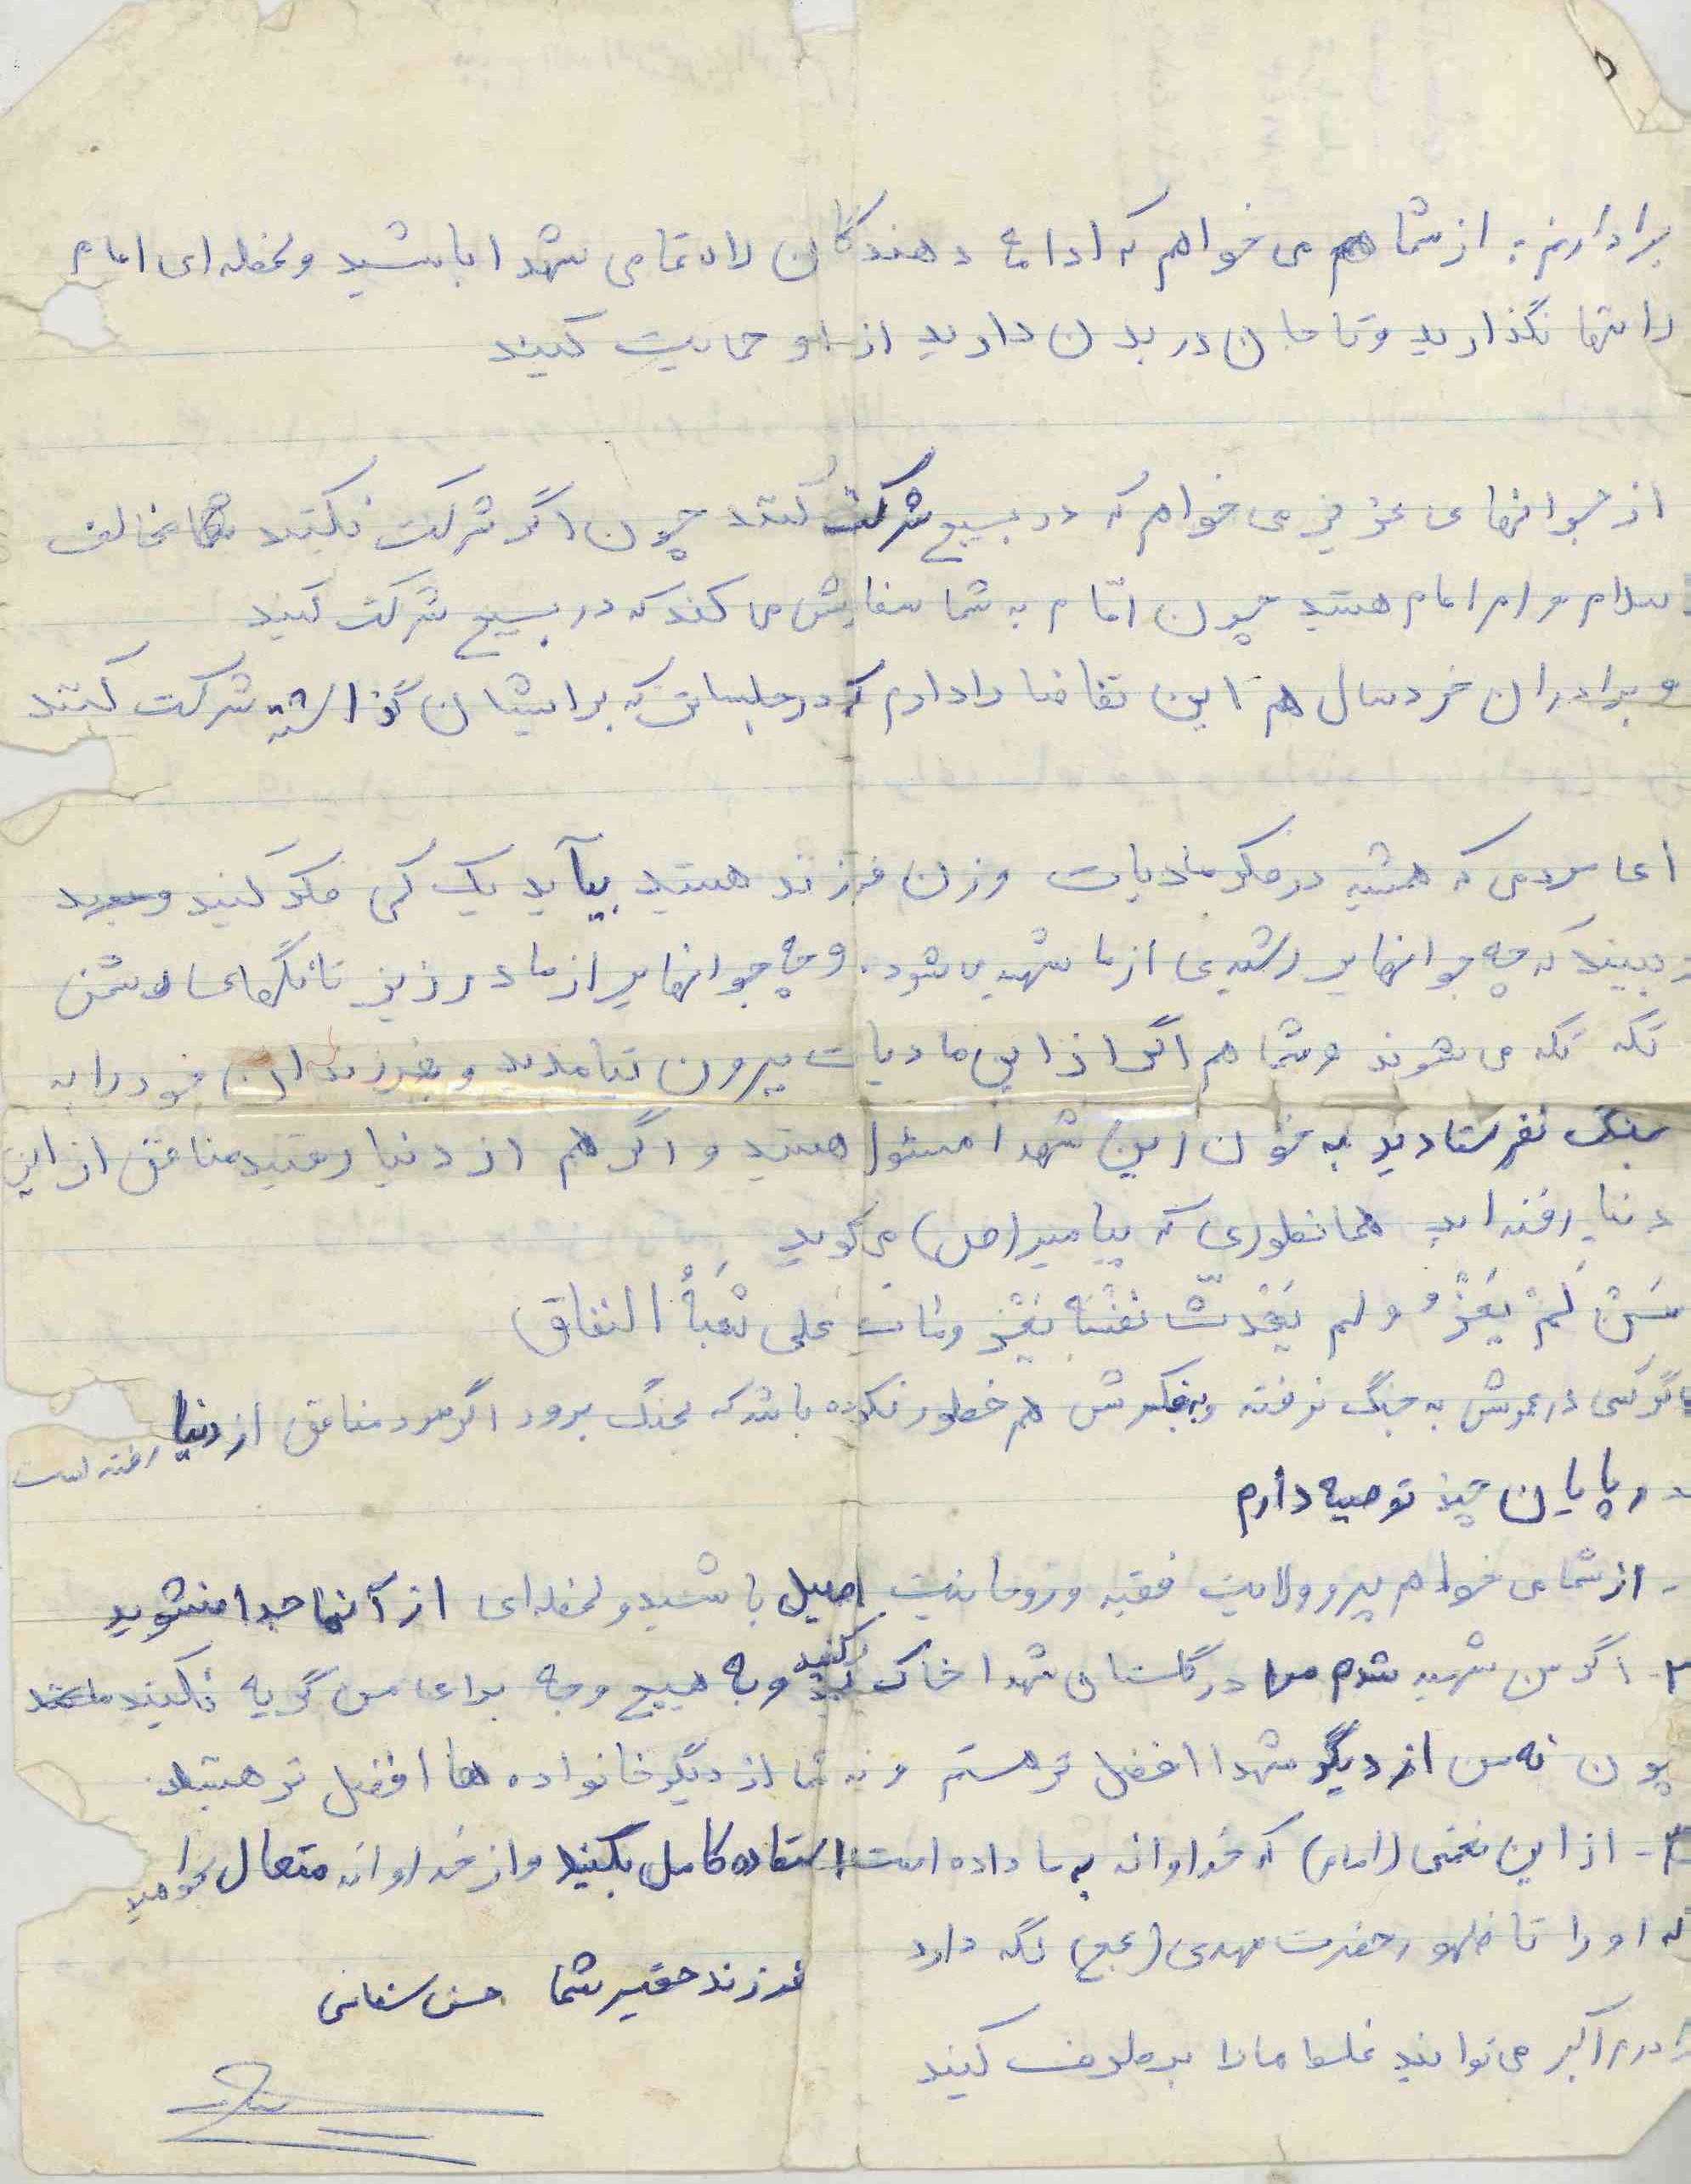 برادارنم: از شما هم می خواهم که ادامه دهندگان راه تمامی شهدا باشید و لحظه ای امام
را تنها نگذارید و تا جان در بدن دارید از او حمایت کنید
از جوانهای عزیز می خواهم که در بسیج شرکت کنند چون اگر شرکت نکنند شما مخالف
اسلام و امر امام هستید چون امام به شما سفارش می کند که در بسیج شرکت کنید
و برادران خردسال هم این تقاضا را دارم که در جلساتی که برایشان گذاشته شرکت کنند
ای مردمی که همشیه در فکر مادیات و زن فرزند هستید بیآید یک کمی فکر کنید
ببیند که چه جوانهایی رشیدی از ما شهید می شود. و چه جوانهایی از ما در زیر تانگهای دشمن
تکه تکه می شوند و شما هم اگر از این مادیات بیرون نیامدید و فرزندان خود را به
جنگ نفرستادید به خون این شهدا مسئول هستید و اگر هم از دنیا رفتید منافق از این
دنیا رفته اید همانطوری که پیامبر (ص) می گوید
مَنْ لَمْ یَغْزُ و لم یَحْدثّ نفْسَه بَغْزو ماتَ عَلی شْعَبةُ النفاق
اگر کسی در عمرش به جنگ نرفته و به فکرش هم خطور نکرده باشد که بجنگ برود اگر مرد منافق از دنیا رفته است
در پایان چند توصیه دارم
- از شما می خواهم پیرو ولایت فقیه و روحانیت اصیل باشید و لحظه ای از آنها جدا نشوید
۲- اگر من شهید شدم مرا در گلستان شهدا خاک کنید و به هیچ وجه برای من گریه نکنید
چون نه من از دیگر شهدا افضل تر هستم و نه شما از دیگر خانواده ها افضل تر هستید
۳- از این نعمتی (امام) که خداوند به ما داده است استفاده کامل بکنید و از خداوند متعال بخواهید
که او را تا ظهور حضرت مهدی (عج) نگه دارد
فرزند حقیر شما حسن
برادرم اکبر می توانید غلط ها را برطرف کنید